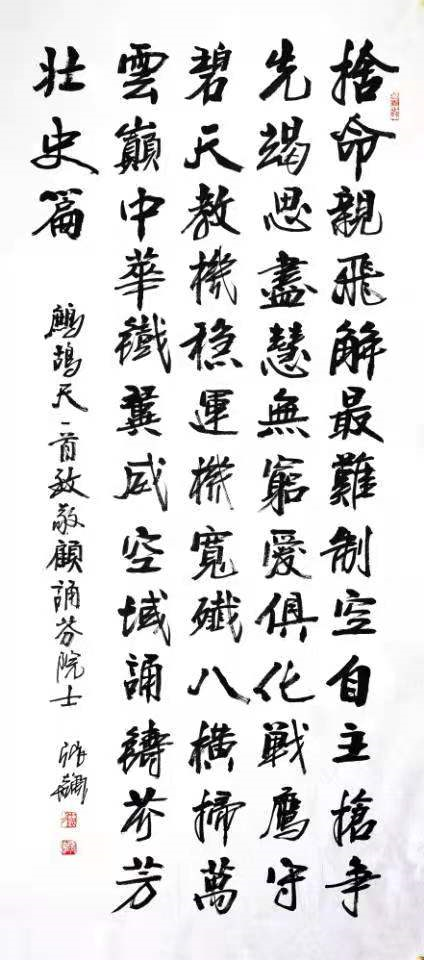 捨命親飛解最難制空自主搶爭
先竭思盡慧無窮愛俱化戦鷹守
碧天教機穩運機寬殲八橫掃萬
雲巔中華鐵翼威空域誦鑄芬芳
壯史篇
鷓鴣天一首致敬顧誦芬院士